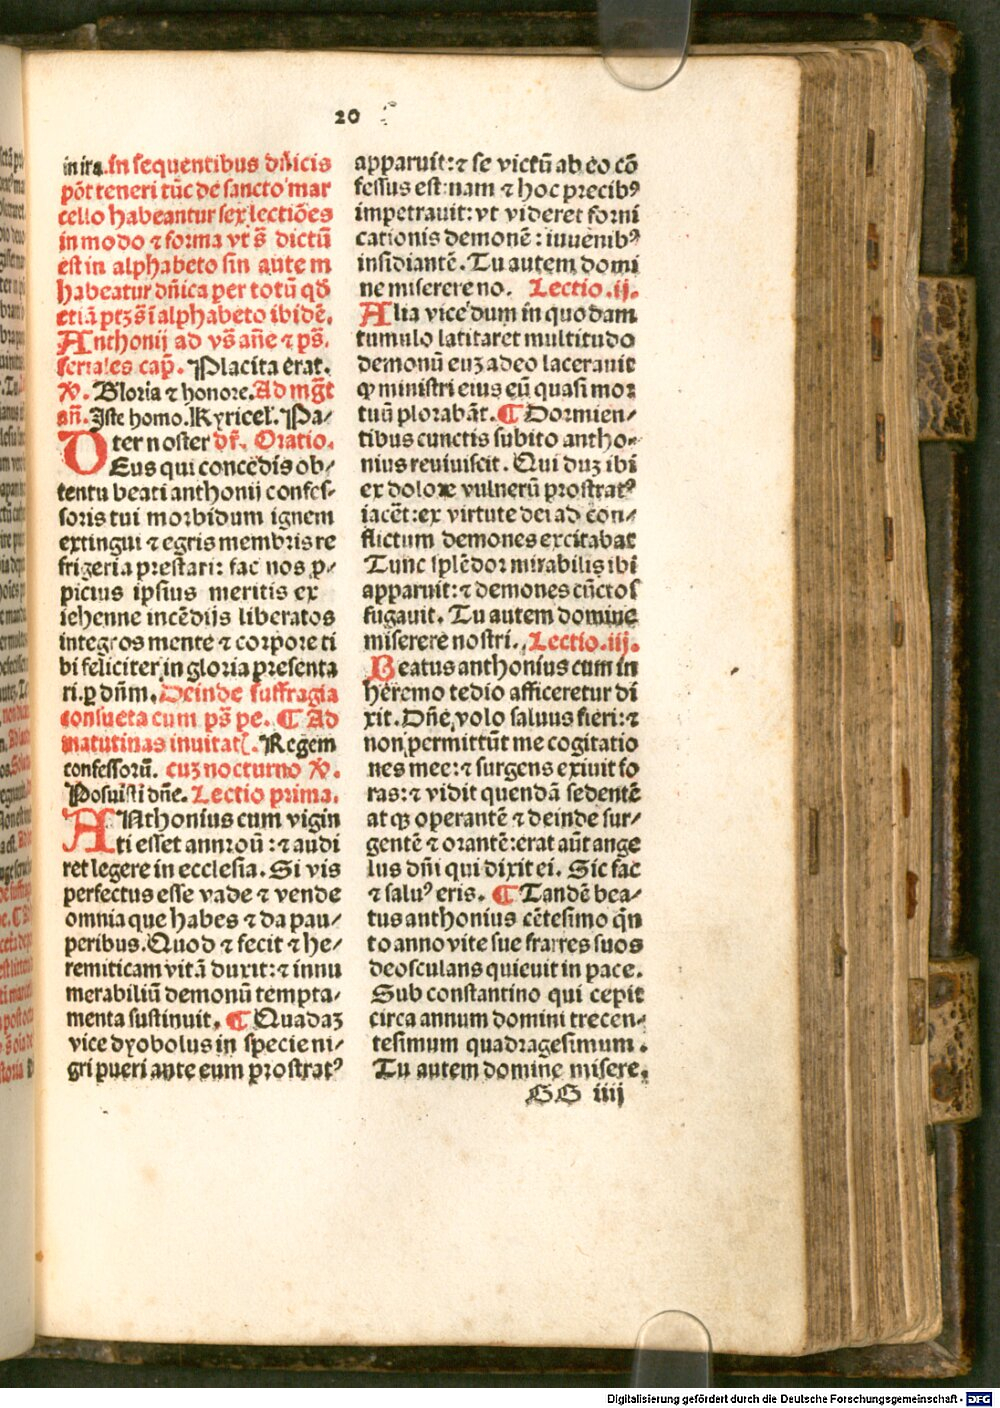 20
in ira. In sequentibus dñicis
põt teneri tūc de sancto mar
cello habeantur sex lectiões
in modo ⁊ forma vt s̄ dictū
est in alphabeto sin autem
habeatur dñica per totū qđ
etiā ptꝫ s̄ ī alphabeto ibidē.
Anthonij ad vs̄ añe ⁊ ps̄.
feriales cap̄. Placita erat.
℣. Gloria ⁊ honore. Ad mgt̄
añ. Iste homo. Kyriel. Pa-
ter noster dr̄. Oratio.
DEus qui concedis ob/
tentu beati anthonij confes-
soris tui morbidum ignem
extingui ⁊ egris membris re
frigeria prestari: fac nos ꝓ/
picius ipsius meritis ex
iehenne incēdijs liberatos
integros mente ⁊ corpore ti
bi feliciter in gloria presenta
ri. ꝑ dñm. Deinde suffragia
consueta cum ps̄ pe. ¶ Ad
matutinas inuitat. Regem
confessorū. cuꝫ nocturno ℣.
Posuisti dñe. Lectio prima.
ANthonius cum vigin
ti esset annroū: ⁊ audi
ret legere in ecclesia. Si vis
perfectus esse vade ⁊ vende
omnia que habes ⁊ da pau/
peribus. Quod ⁊ fecit ⁊ he/
remiticam vitā duxit: ⁊ innu
merabiliū demonū tempta/
menta sustinuit. ¶ Quadaꝫ
vice dyobolus in specie ni/
gri pueri ante eum prostratꝰ
apparuit: ⁊ se victū ab eo cō
fessus est: nam ⁊ hoc precibꝰ
impetrauit: vt videret forni
cationis demonē: iuuenibꝰ
insidiantē. Tu autem domi
ne miserere no. Lectio .ij.
Alia vice dum in quodam
tumulo latitaret multitudo
demonū euꝫ adeo lacerauit
ꝙ ministri eius eū quasi mor
tuū plorabāt. ¶ Dormien/
tibus cunctis subito antho/
nius reuiuiscit. Qui duꝫ ibi
ex dolore vulnerū prostratꝰ
iacēt: ex virtute dei ad con/
flictum demones excitabat
Tunc splēdor mirabilis ibi
apparuit: ⁊ demones cūctos
fugauit. Tu autem domine
miserere nostri. Lectio .iij.
Beatus anthonius cum in
heremo tedio afficeretur di
xit. Dñe, volo saluus fieri: ⁊
non permittūt me cogitatio
nes mee: ⁊ surgens exiuit fo
ras: ⁊ vidit quendā sedentē
atqꝫ operantē ⁊ deinde sur/
gentē ⁊ orantē: erat aūt ange
lus dñi qui dixit ei. Sic fac
⁊ saluꝰ eris. ¶ Tandē bea/
tus anthonius cētesimo qn̄
to anno vite sue fratres suos
deosculans quieuit in pace.
Sub constantino qui cepit
circa annum domini trecen/
tesimum quadragesimum.
Tu autem domine misere.
GG iiij
Digitalisierung gefördert durch die Deutsche Forschungsgemeinschaft - DFG